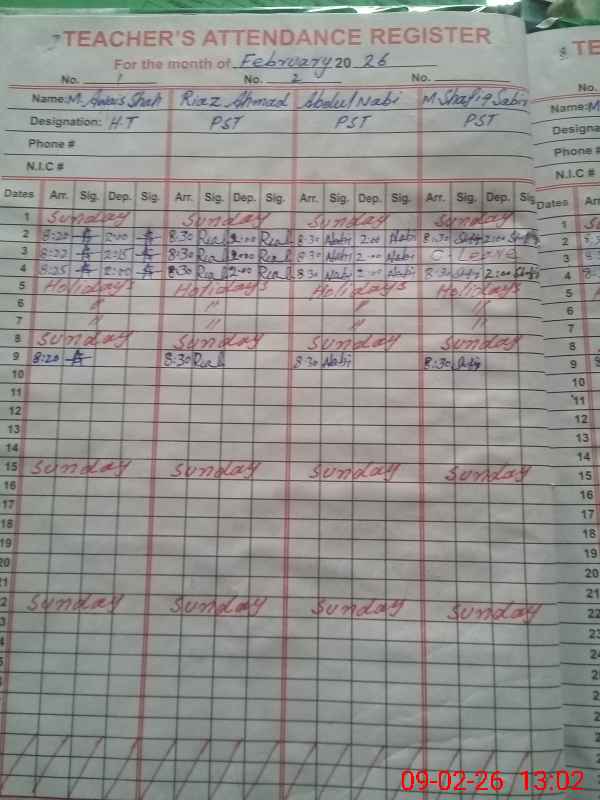 7 TEACHER'S ATTENDANCE REGISTER
For the month of February 20 26
No. 1 No. 2 No.
Name: M. Awais Shah Riaz Ahmad Abdul Nabi M. Shafiq Sabir
Designation: H.T PST PST PST
Phone #
N.I.C #
Dates Arr. Sig. Dep. Sig. Arr. Sig. Dep. Sig. Arr. Sig. Dep. Sig. Arr. Sig. Dep. Sig
1 Sunday Sunday Sunday Sunday
2 8:20 2:00 8:30 2:00 8:30 Nabi 2:00 Nabi 8:30 2:00
3 8:22 2:15 8:30 2:00 8:30 Nabi 2:00 Nabi C. Leave
4 8:25 2:00 8:30 2:00 8:30 Nabi 2:00 Nabi 8:30 2:00
5 Holidays Holidays Holidays Holidays
6 " " " "
7 " " " "
8 Sunday Sunday Sunday Sunday
9 8:20 8:30 8:30 Nabi 8:30
10
11
12
13
14
15 Sunday Sunday Sunday Sunday
16
17
18
19
20
21
2 Sunday Sunday Sunday Sunday
8 TE
No.
Name: M
Designa
Phone #
N.I.C #
Dates
1
2
3
4
5
6
7
8
9
10
11
12
13
14
15
16
17
18
19
20
21
22
23
09-02-26 13:02